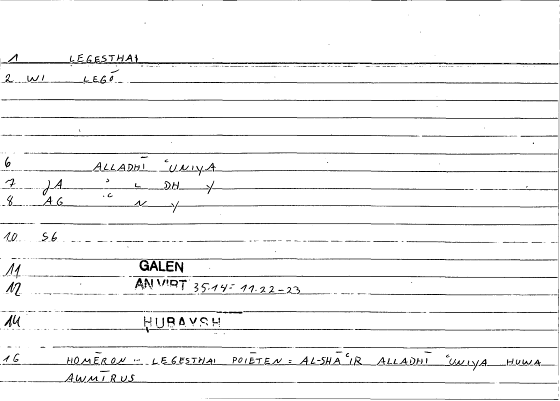 1 LEGESTHAI
2 WI LEGŌ
6 ALLADHĪ ʿUNIYA
7 JA ʾ L DH Y
8 AG ʿ N Y
10 S6
11 GALEN
12 AN VIRT 35.14 = 11.22-23
14 HUBAYSH
16 HOMĒRON -- LEGESTHAI POIĒTEN = AL-SHĀʿIR ALLADHĪ ʿUNIYA HUWA
AWMĪRUS